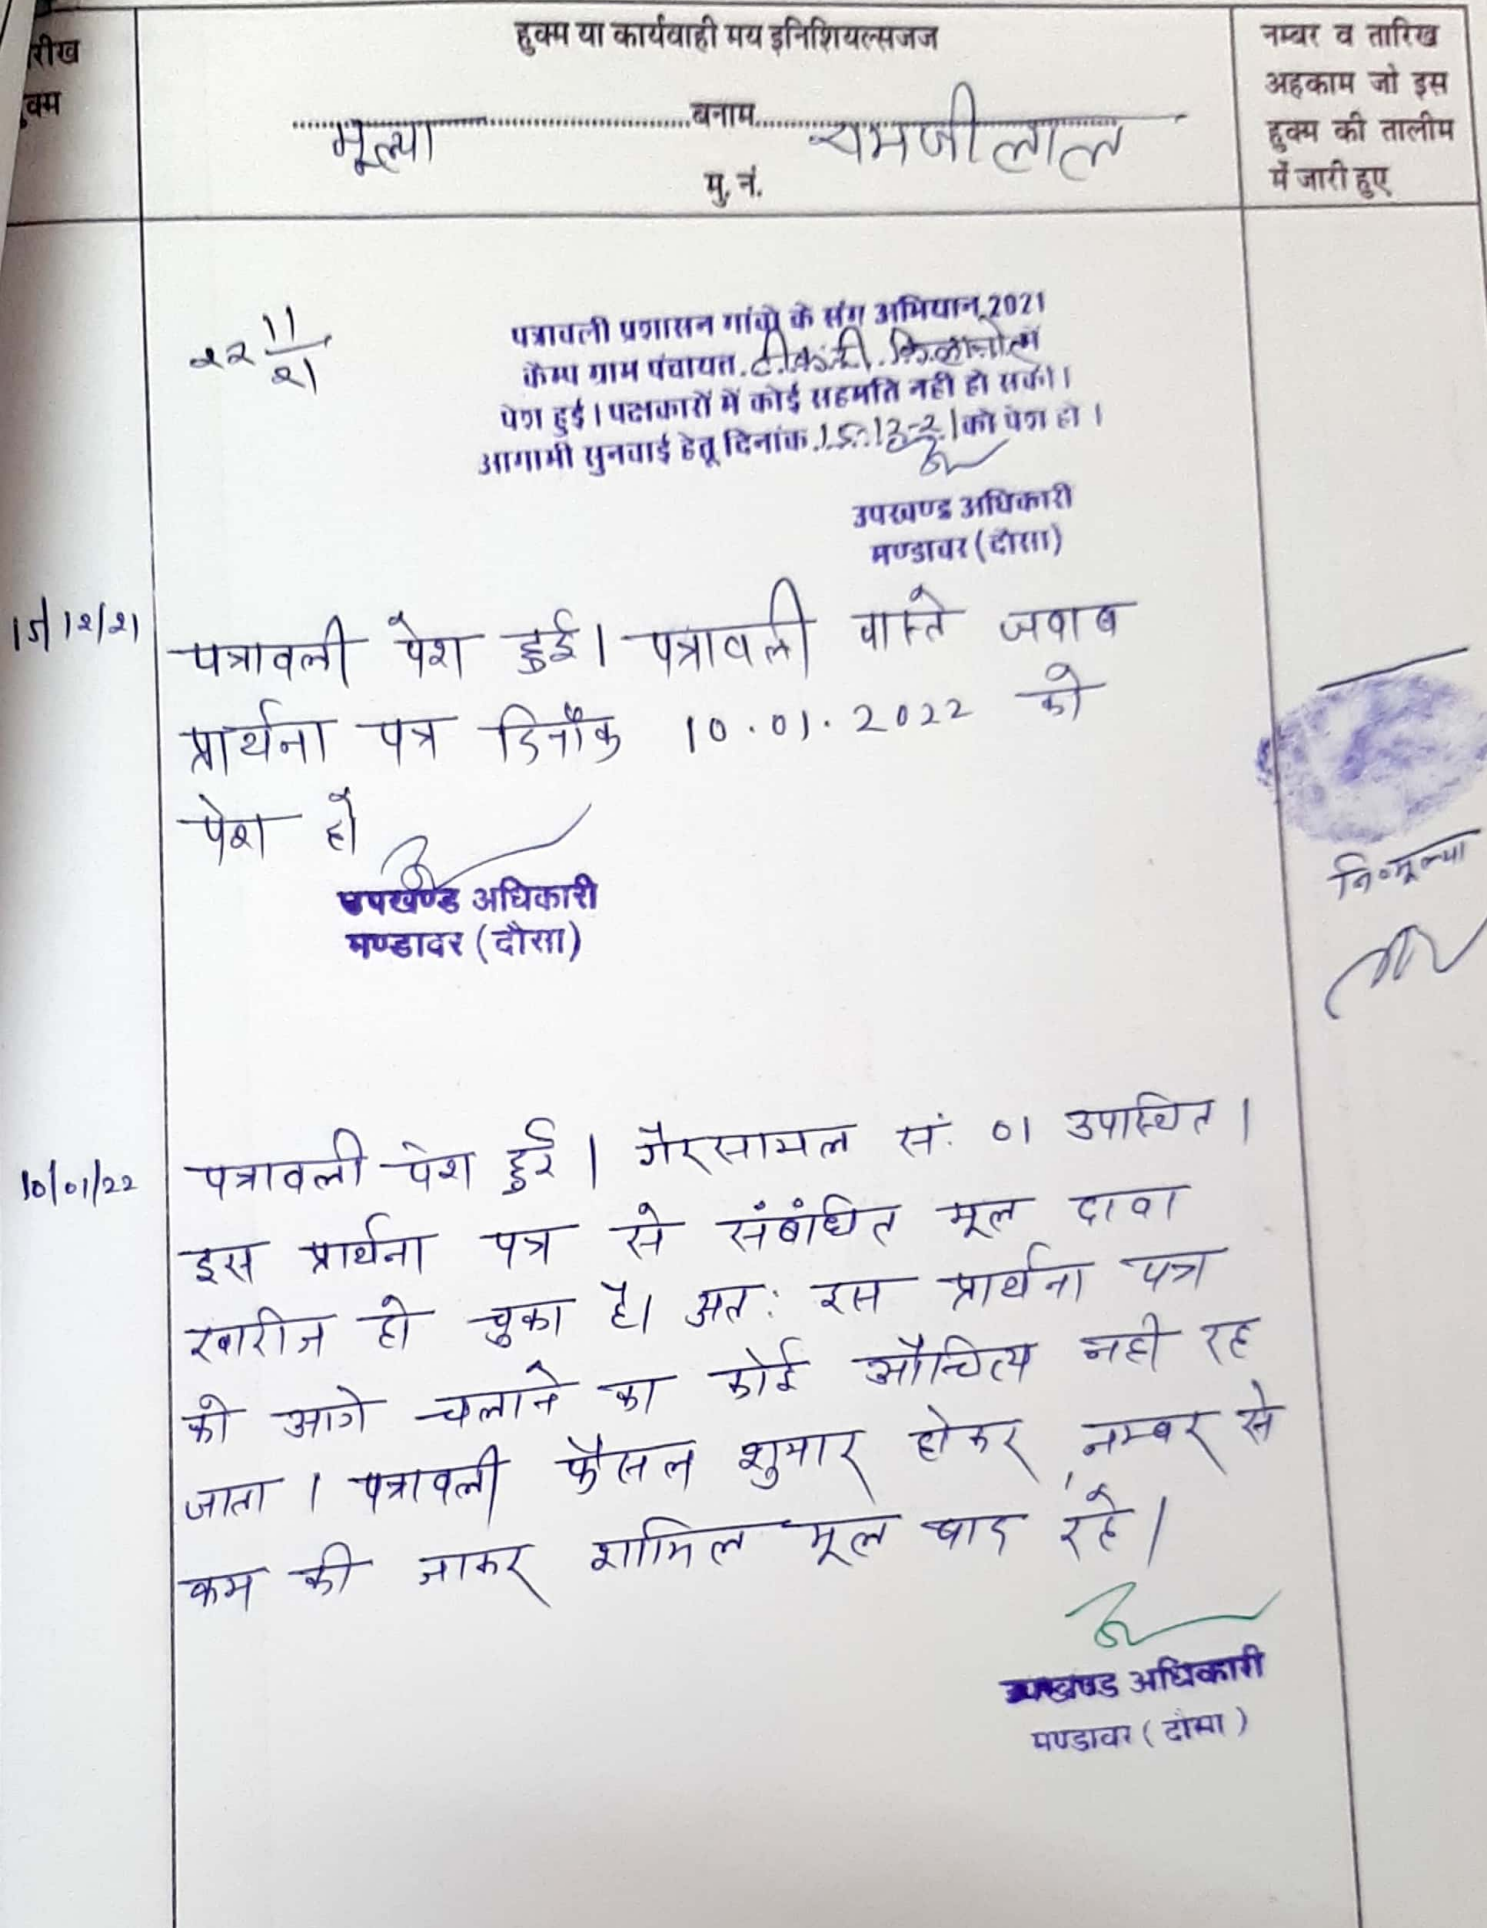 रीख
हुक्म
हुक्म या कार्यवाही मय इनिशियल्सजज
मूल्या बनाम रामजीलाल
मु. नं.
नम्बर व तारिख
अहकाम जो इस
हुक्म की तालीम
में जारी हुए
22 11/21
पत्रावली प्रशासन गांवो के संग अभियान, 2021
कैम्प ग्राम पंचायत. टीकरी
पेश हुई। पक्षकारों में कोई सहमति नही हो सकी।
आगामी सुनवाई हेतू दिनांक 15-12-21 को पेश हो।
उपखण्ड अधिकारी
मण्डावर (दौसा)
15/12/21
पत्रावली पेश हुई। पत्रावली वास्ते जवाब
प्रार्थना पत्र दिनाँक 10.01.2022 को
पेश हो
उपखण्ड अधिकारी
मण्डावर (दौसा)
नि॰ मूल्या
10/01/22
पत्रावली पेश हुई। गैरसायल सं. 01 उपस्थित।
इस प्रार्थना पत्र से संबंधित मूल दावा
खारीज हो चुका है। अत: इस प्रार्थना पत्र
को आगे चलाने का कोई औचित्य नही रह
जाता। पत्रावली फैसल शुमार होकर, नम्बर से
कम की जाकर शामिल मूल वाद रहे।
उपखण्ड अधिकारी
मण्डावर (दौसा)